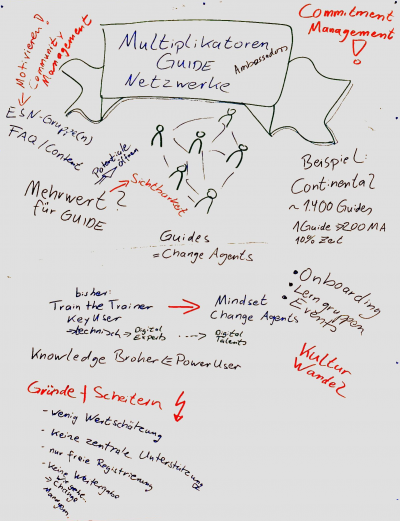 Commitment
Management
!
Motivieren!
Community
Management
Multiplikatoren
GUIDE
Netzwerke
Ambassadors
ESN-Gruppe(n)
FAQ/Content
Potentiale
öffnen
Sichtbarkeit
Mehrwert?
für GUIDE
Guides
= Change Agents
Beispiel:
Continental
~ 1.400 Guides
1 Guide → 200 MA
10% Zeit
bisher:
Train the Trainer
Key User
→ technisch → Digital Experts ...→ Digital Talents
→ Mindset
Change Agents
• Onboarding
• Lerngruppen
• Events
Knowledge Broker ← PowerUser
Kultur
Wandel
Gründe f Scheitern
- wenig Wertschätzung
- keine zentrale Unterstützung
- nur freie Registrierung
- keine Weitergabe
→ Change
Managem.